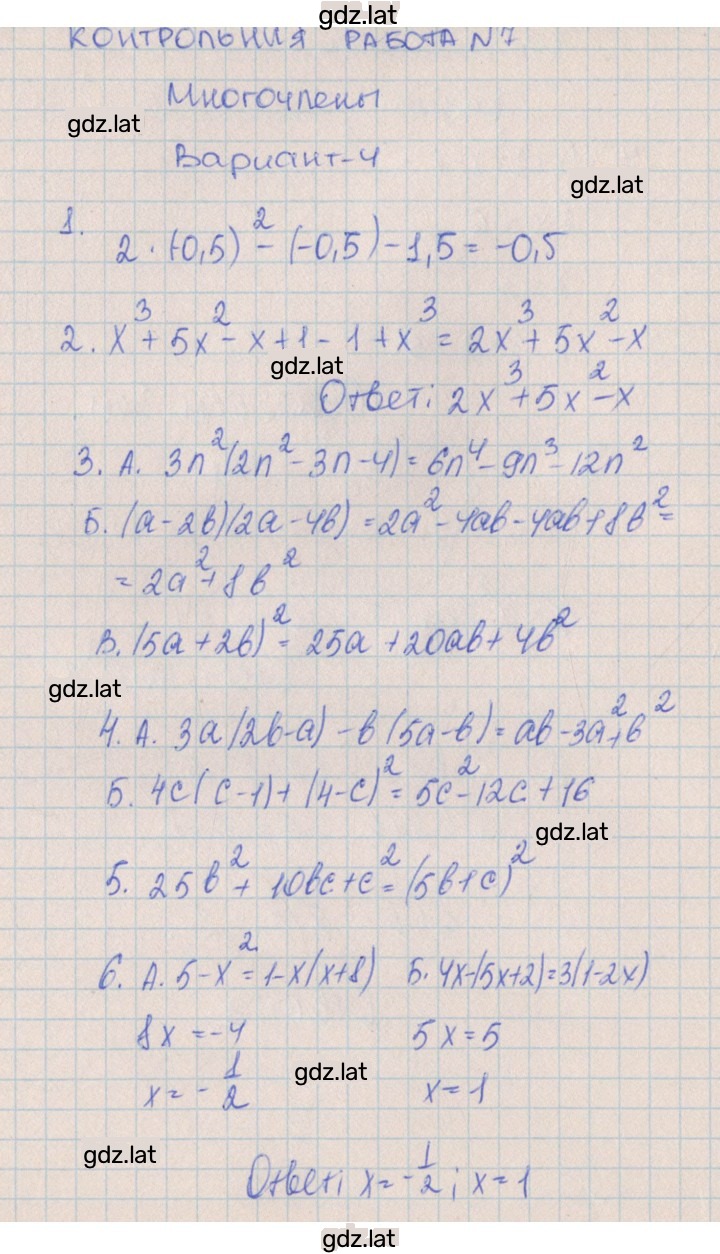 gdz.lat
КОНТРОЛЬНИЯ РАБОТА N7
Многочлены
gdz.lat
Вариант-4
gdz.lat
1. 2·(-0,5)² - (-0,5) - 1,5 = -0,5
2. x³ + 5x² - x + 1 - 1 + x³ = 2x³ + 5x² - x
gdz.lat
Ответ: 2x³ + 5x² - x
3. А. 3n²(2n² - 3n - 4) = 6n⁴ - 9n³ - 12n²
Б. (a - 2b)(2a - 4b) = 2a² - 4ab - 4ab + 8b² =
= 2a² + 8b²
В. (5a + 2b)² = 25a + 20ab + 4b²
gdz.lat
4. А. 3a(2b-a) - b(5a-b) = ab - 3a² + b²
Б. 4c(c-1) + (4-c)² = 5c² - 12c + 16
gdz.lat
5. 25b² + 10bc + c² = (5b+c)²
6. А. 5-x² = 1-x(x+8) Б. 4x-(5x+2)=3(1-2x)
8x = -4 5x = 5
x = - 1/2 x = 1
gdz.lat
gdz.lat
Ответ: x = - 1/2; x = 1
gdz.lat